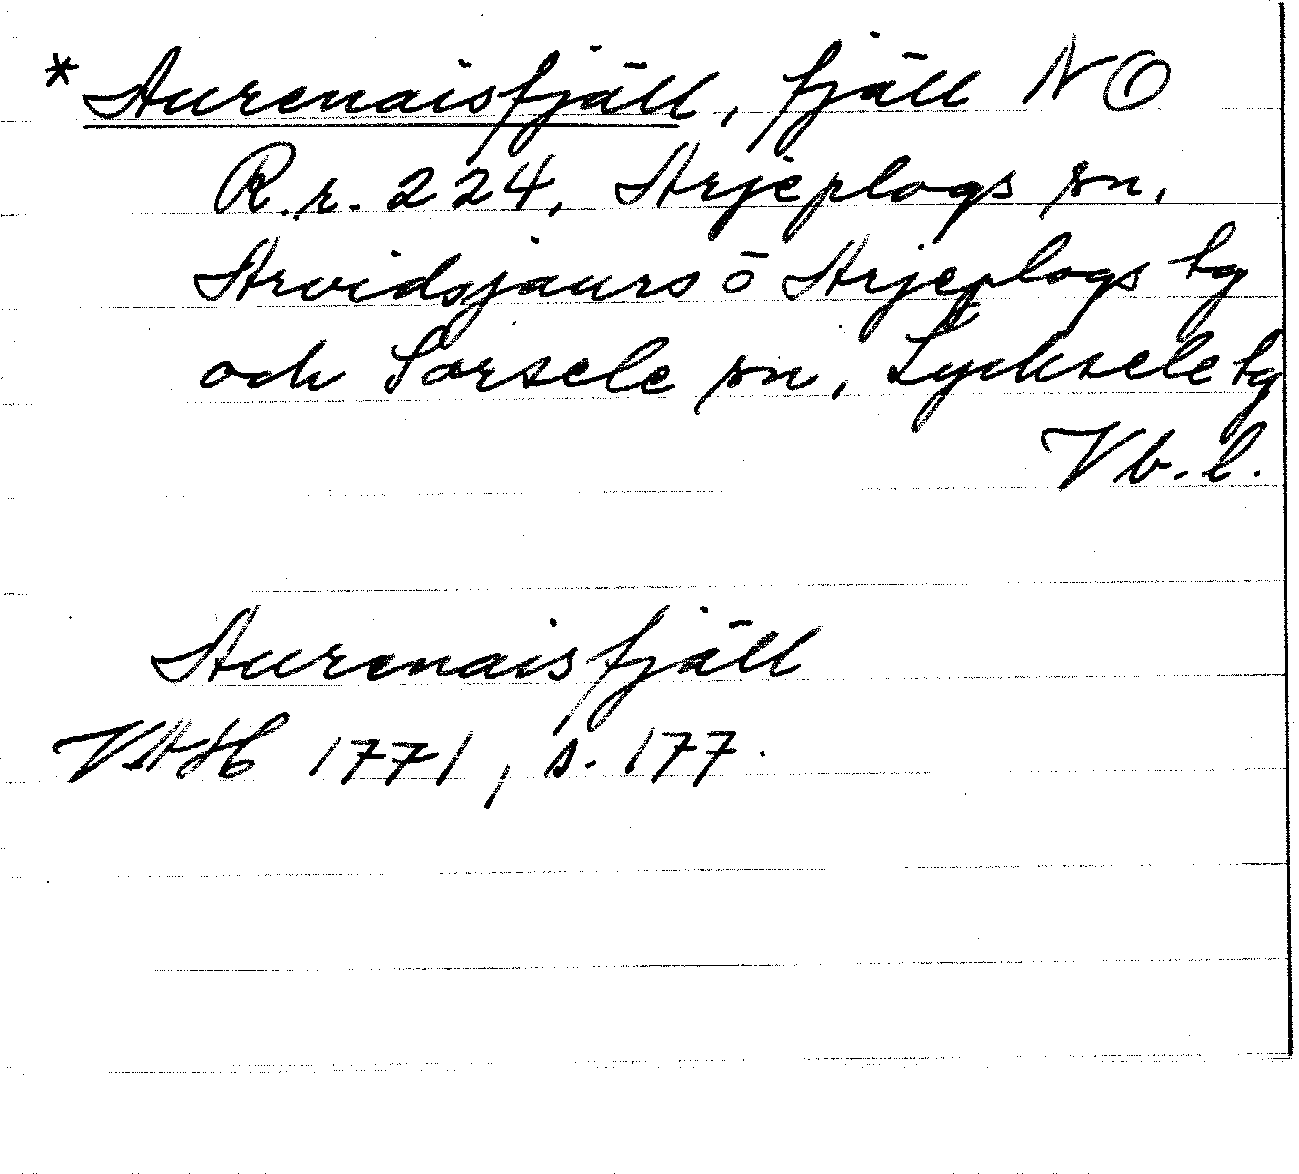 * Aurenaisfjäll, fjäll NO
R.r. 224, Arjeplogs sn,
Arvidsjaurs o Arjeplogs tg
och Sorsele sn, Lycksele tg
Vb. l.
Aurenaisfjäll
VAH 1771, s. 177.